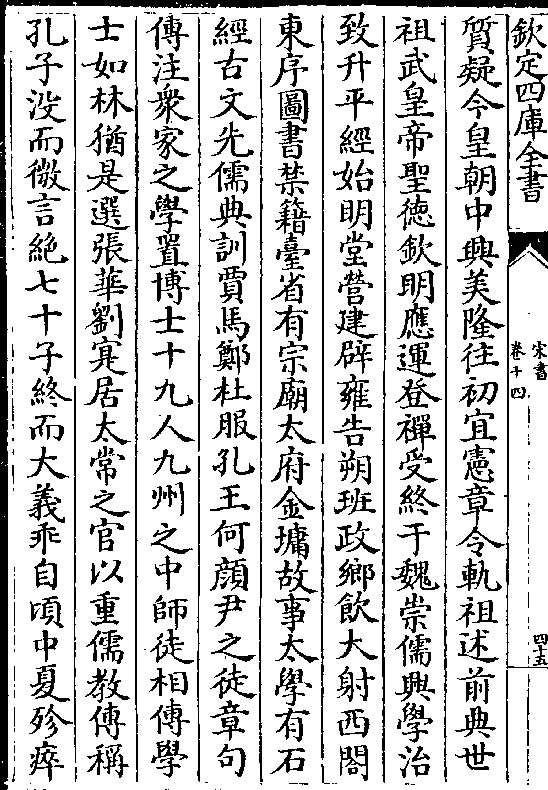 欽定四庫全書
宋書
卷十四
四十五
質疑今皇朝中興美隆往初宜憲章令軌祖述前典世
祖武皇帝聖德欽明應運登禪受終于魏崇儒興學治
致升平經始明堂營建辟雍告朔班政鄉飲大射西閤
東序圖書禁籍臺省有宗廟太府金墉故事太學有石
經古文先儒典訓賈馬鄭杜服孔王何顔尹之徒章句
傳注衆家之學置博士十九人九州之中師徒相傳學
士如林猶是選張華劉寔居太常之官以重儒教傳稱
孔子没而微言絶七十子終而大義乖自頃中夏殄瘁